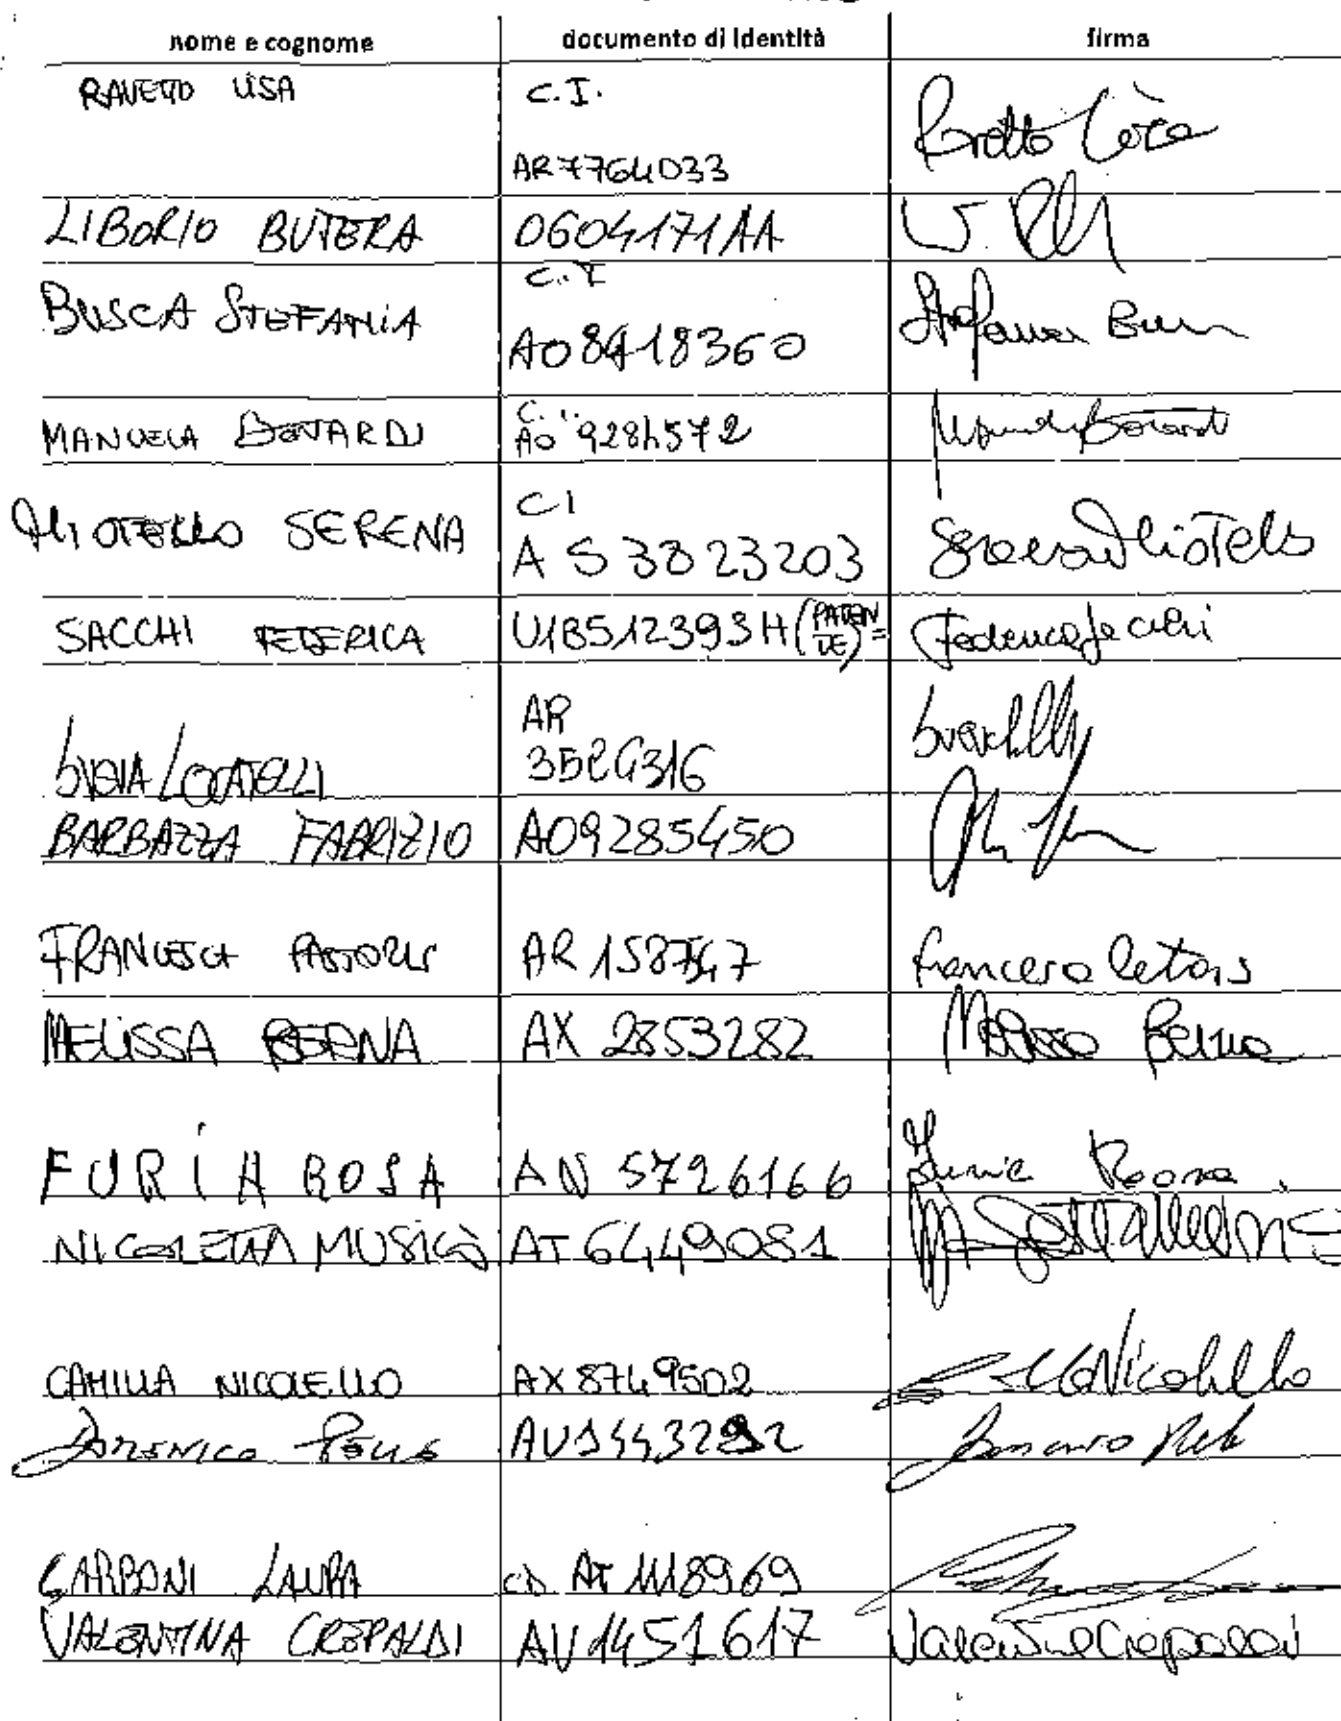 nome e cognome documento di identità firma
RAVETTO LISA C.I.
AR7764033
LIBORIO BUTERA 0604171AA
C.I
BUSCA STEFANIA AO8418360 Stefania
MANUELA AO 9284572
CI
MIOTELLO SERENA AS3823203 Serena Miotello
SACCHI FEDERICA U1B512393H (PATENTE) Federica Sacchi
AR
LOCATELLI
BARBAZZA FABRIZIO AO9285450
FRANCESCA PASTORIS AR Francesca
MELISSA BERNA AX 2853282 Melissa Berna
FURIA ROSA AN 5726166 Furia Rosa
NICOLETTA MUSICÒ AT 6449081
CAMILLA NICOLELLO AX 8749502 Nicolello
DOMENICO
CARBONI LAURA AT 1118969
VALENTINA CREPALDI AV1451617 Valentina Crepaldi